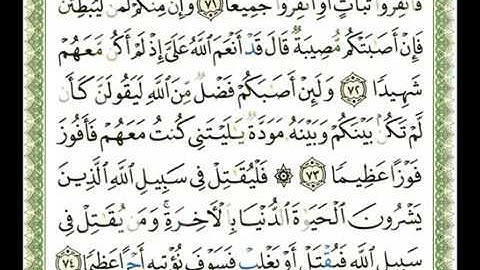 فَانفِرُوا۟ ثُبَاتٍ أَوِ ٱنفِرُوا۟ جَمِيعًا ٧١ وَإِنَّ مِنكُمْ لَمَن لَّيُبَطِّئَنَّ
فَإِنْ أَصَٰبَتْكُم مُّصِيبَةٌ قَالَ قَدْ أَنْعَمَ ٱللَّهُ عَلَىَّ إِذْ لَمْ أَكُن مَّعَهُمْ
شَهِيدًا ٧٢ وَلَئِنْ أَصَٰبَكُمْ فَضْلٌ مِّنَ ٱللَّهِ لَيَقُولَنَّ كَأَن
لَّمْ تَكُنۢ بَيْنَكُمْ وَبَيْنَهُۥ مَوَدَّةٌ يَٰلَيْتَنِى كُنتُ مَعَهُمْ فَأَفُوزَ
فَوْزًا عَظِيمًا ٧٣ ۞ فَلْيُقَٰتِلْ فِى سَبِيلِ ٱللَّهِ ٱلَّذِينَ
يَشْرُونَ ٱلْحَيَوٰةَ ٱلدُّنْيَا بِٱلْءَاخِرَةِ ۚ وَمَن يُقَٰتِلْ فِى
سَبِيلِ ٱللَّهِ فَيُقْتَلْ أَوْ يَغْلِبْ فَسَوْفَ نُؤْتِيهِ أَجْرًا عَظِيمًا ٧٤